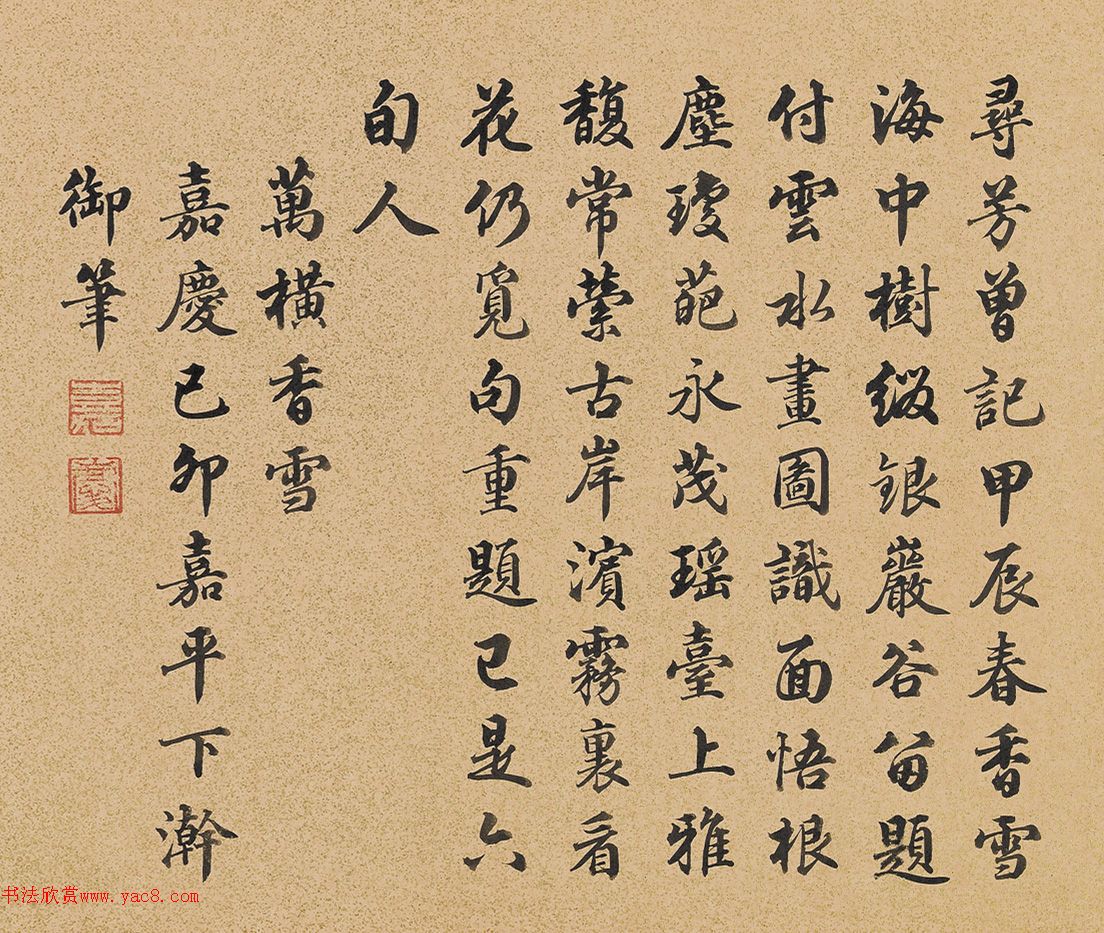 尋芳曾記甲辰春香雪
海中樹綴銀巖谷留題
付雲水畫圖識面悟根
塵瓊葩永茂瑶臺上雅
馥常縈古岸濱霧裏看
花仍覓句重題已是六
旬人
萬橫香雪
嘉慶己卯嘉平下澣
御筆
书法欣赏www.yac8.com